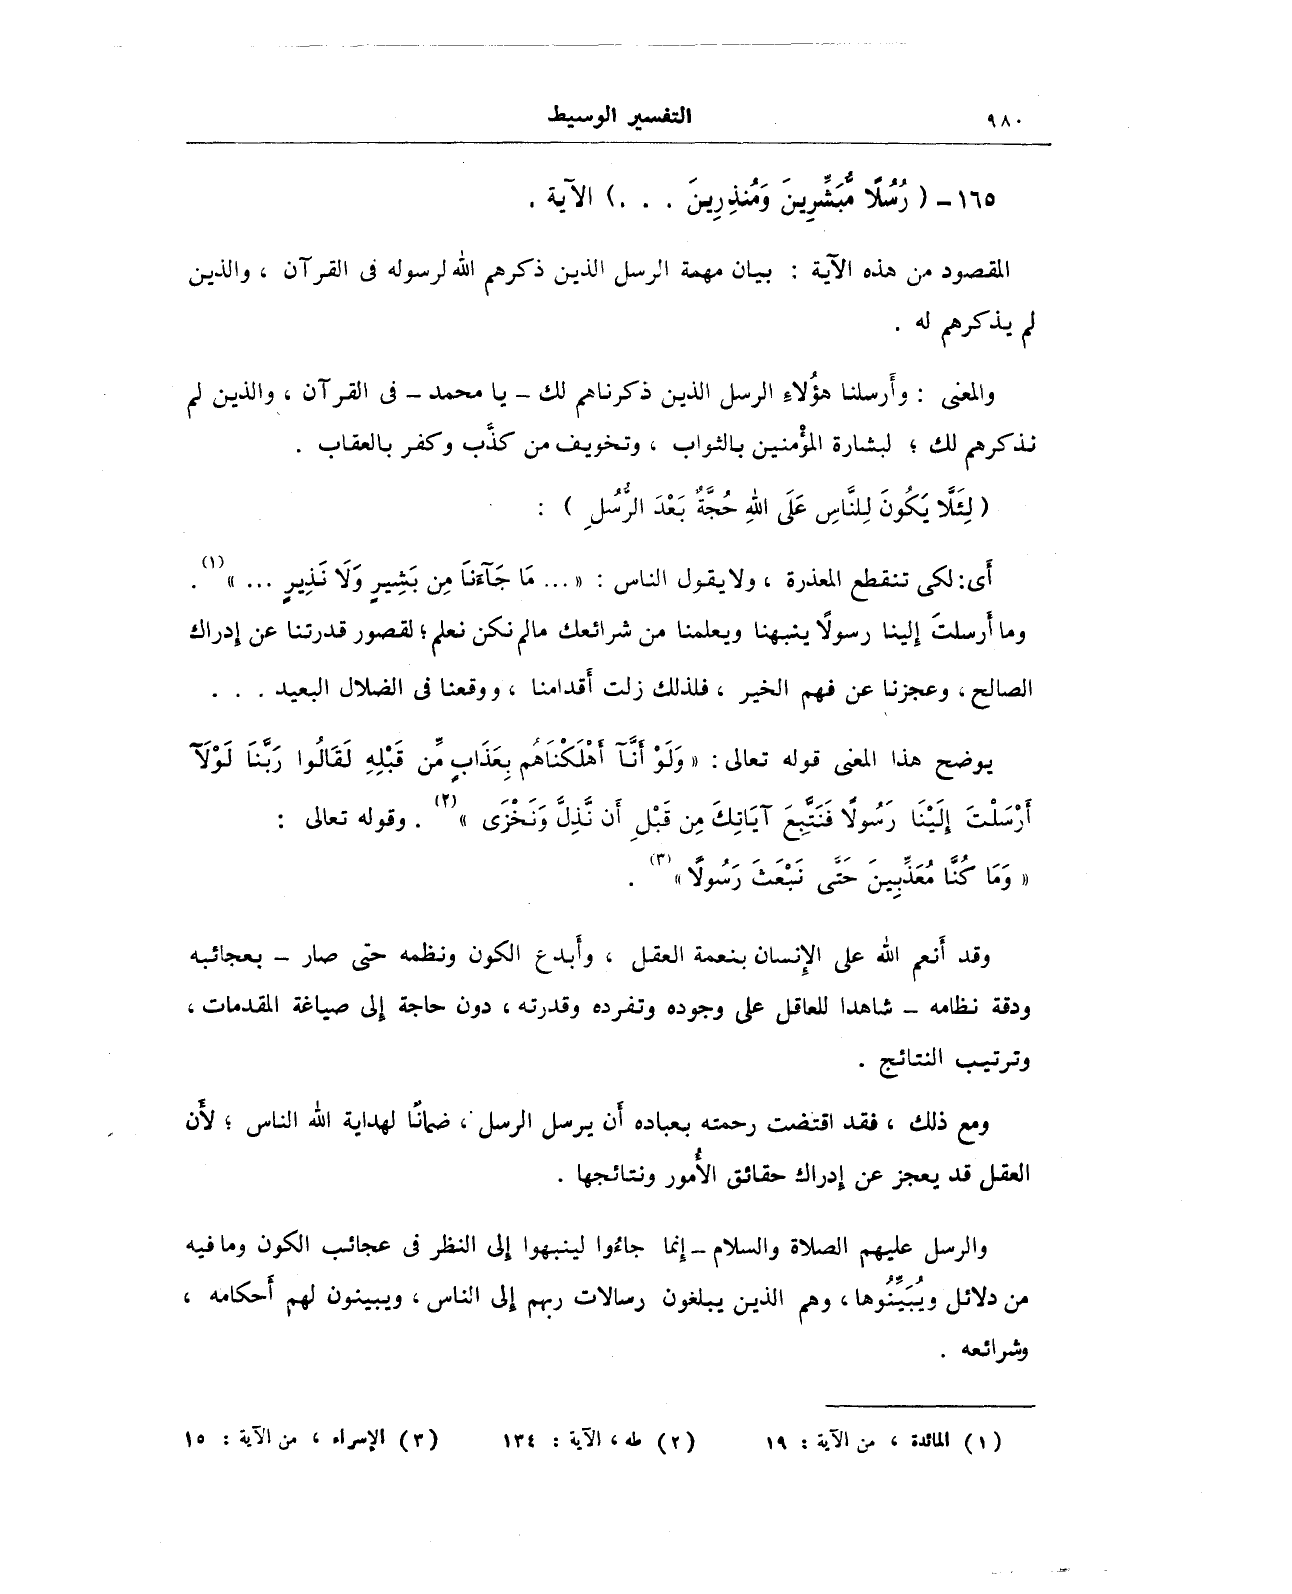 ٩٨٠
التفسير الوسيط
١٦٥ – ( رُسُلًا مُّبَشِّرِينَ وَمُنذِرِينَ . . .) الآية .
المقصود من هذه الآية : بيان مهمة الرسل الذين ذكرهم الله لرسوله فى القرآن ، والذين
لم يذكرهم له .
والمعنى : وأَرسلنا هؤُلاءِ الرسل الذين ذكرناهم لك – يا محمد – فى القرآن ، والذين لم
نذكرهم لك ؛ لبشارة المؤْمنين بالثواب ، وتخويف من كذَّب وكفر بالعقاب .
( لِئَلَّا يَكُونَ لِلنَّاسِ عَلَى اللهِ حُجَّةٌ بَعْدَ الرُّسُلِ ) :
أَى: لكى تنقطع المعذرة ، ولا يقول الناس : « ... مَا جَآءَنَا مِن بَشِيرٍ وَلَا نَذِيرٍ ... »(١) .
وما أَرسلتَ إِلينا رسولًا ينبهنا ويعلمنا من شرائعك مالم نكن نعلم؛ لقصور قدرتنا عن إِدراك
الصالح ، وعجزنا عن فهم الخير ، فلذلك زلت أَقدامنا ، ووقعنا فى الضلال البعيد . . .
يوضح هذا المعنى قوله تعالى : « وَلَوْ أَنَّآ أَهْلَكْنَاهُم بِعَذَابٍ مِّن قَبْلِهِ لَقَالُوا رَبَّنَا لَوْلَآ
أَرْسَلْتَ إِلَيْنَا رَسُولًا فَنَتَّبِعَ آيَاتِكَ مِن قَبْلِ أَن نَّذِلَّ وَنَخْزَى »(٢) . وقوله تعالى :
« وَمَا كُنَّا مُعَذِّبِينَ حَتَّى نَبْعَثَ رَسُولًا »(٣) .
وقد أَنعم الله على الإِنسان بنعمة العقل ، وأَبدع الكون ونظمه حتى صار – بعجائبه
ودقة نظامه – شاهدا للعاقل على وجوده وتفرده وقدرته ، دون حاجة إِلى صياغة المقدمات ،
وترتيب النتائج .
ومع ذلك ، فقد اقتضت رحمته بعباده أَن يرسل الرسل ، ضمانًا لهداية الله الناس ؛ لأَن
العقل قد يعجز عن إِدراك حقائق الأُمور ونتائجها .
والرسل عليهم الصلاة والسلام – إِنما جاءُوا لينبهوا إِلى النظر فى عجائب الكون وما فيه
من دلائل ويُبَيِّنُوها ، وهم الذين يبلغون رسالات ربهم إِلى الناس ، ويبينون لهم أَحكامه ،
وشرائعه .
(١) المائدة ، من الآية : ١٩ (٢) طه ، الآية : ١٣٤ (٣) الإسراء ، من الآية : ١٥